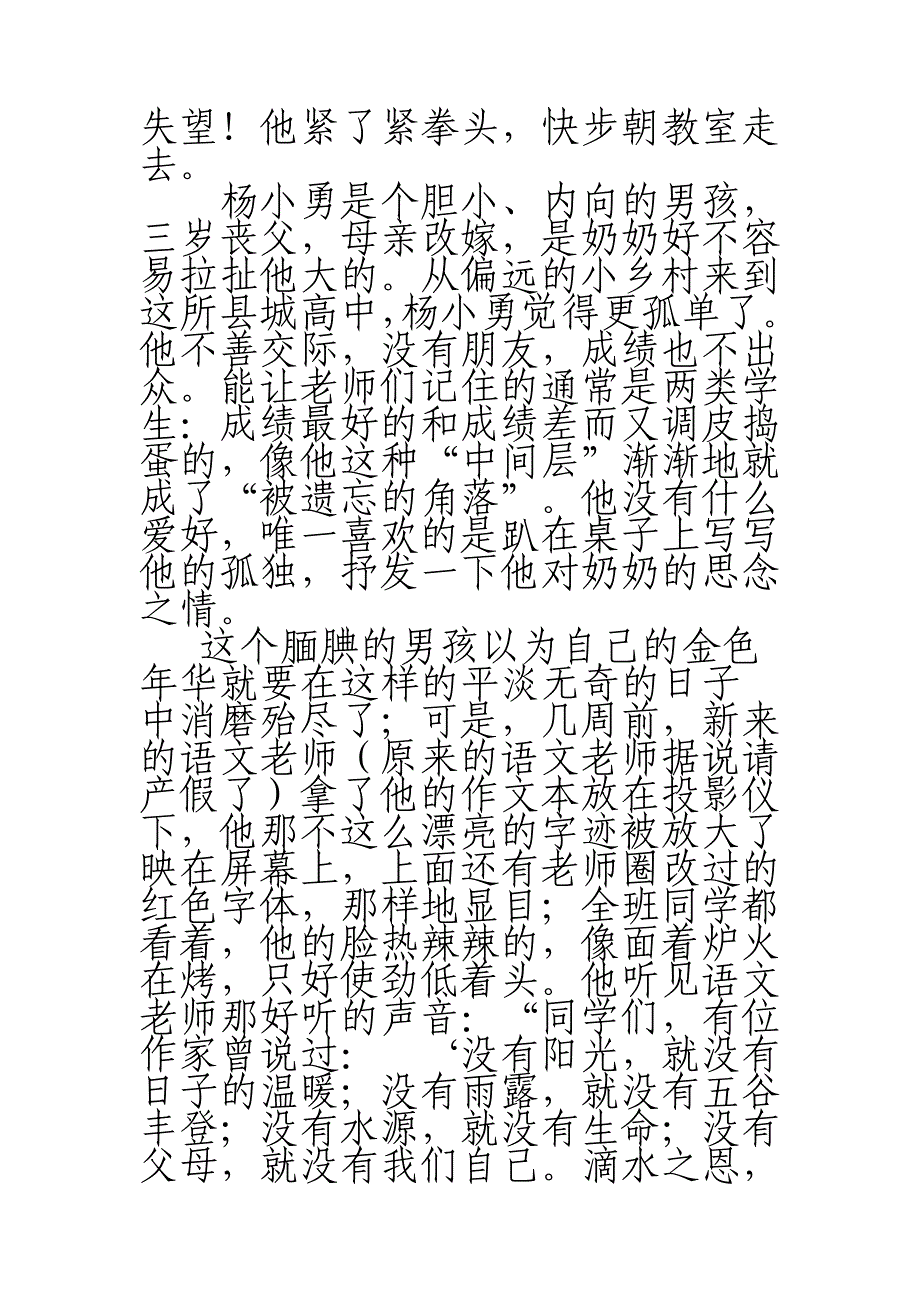 失望！他紧了紧拳头，快步朝教室走
去。
杨小勇是个胆小、内向的男孩，
三岁丧父，母亲改嫁，是奶奶好不容
易拉扯他大的。从偏远的小乡村来到
这所县城高中，杨小勇觉得更孤单了。
他不善交际，没有朋友，成绩也不出
众。能让老师们记住的通常是两类学
生：成绩最好的和成绩差而又调皮捣
蛋的，像他这种“中间层”渐渐地就
成了“被遗忘的角落”。他没有什么
爱好，唯一喜欢的是趴在桌子上写写
他的孤独，抒发一下他对奶奶的思念
之情。
这个腼腆的男孩以为自己的金色
年华就要在这样的平淡无奇的日子
中消磨殆尽了；可是，几周前，新来
的语文老师（原来的语文老师据说请
产假了）拿了他的作文本放在投影仪
下，他那不这么漂亮的字迹被放大了
映在屏幕上，上面还有老师圈改过的
红色字体，那样地显目；全班同学都
看着，他的脸热辣辣的，像面着炉火
在烤，只好使劲低着头。他听见语文
老师那好听的声音：“同学们，有位
作家曾说过：　‘没有阳光，就没有
日子的温暖；没有雨露，就没有五谷
丰登；没有水源，就没有生命；没有
父母，就没有我们自己。滴水之恩，